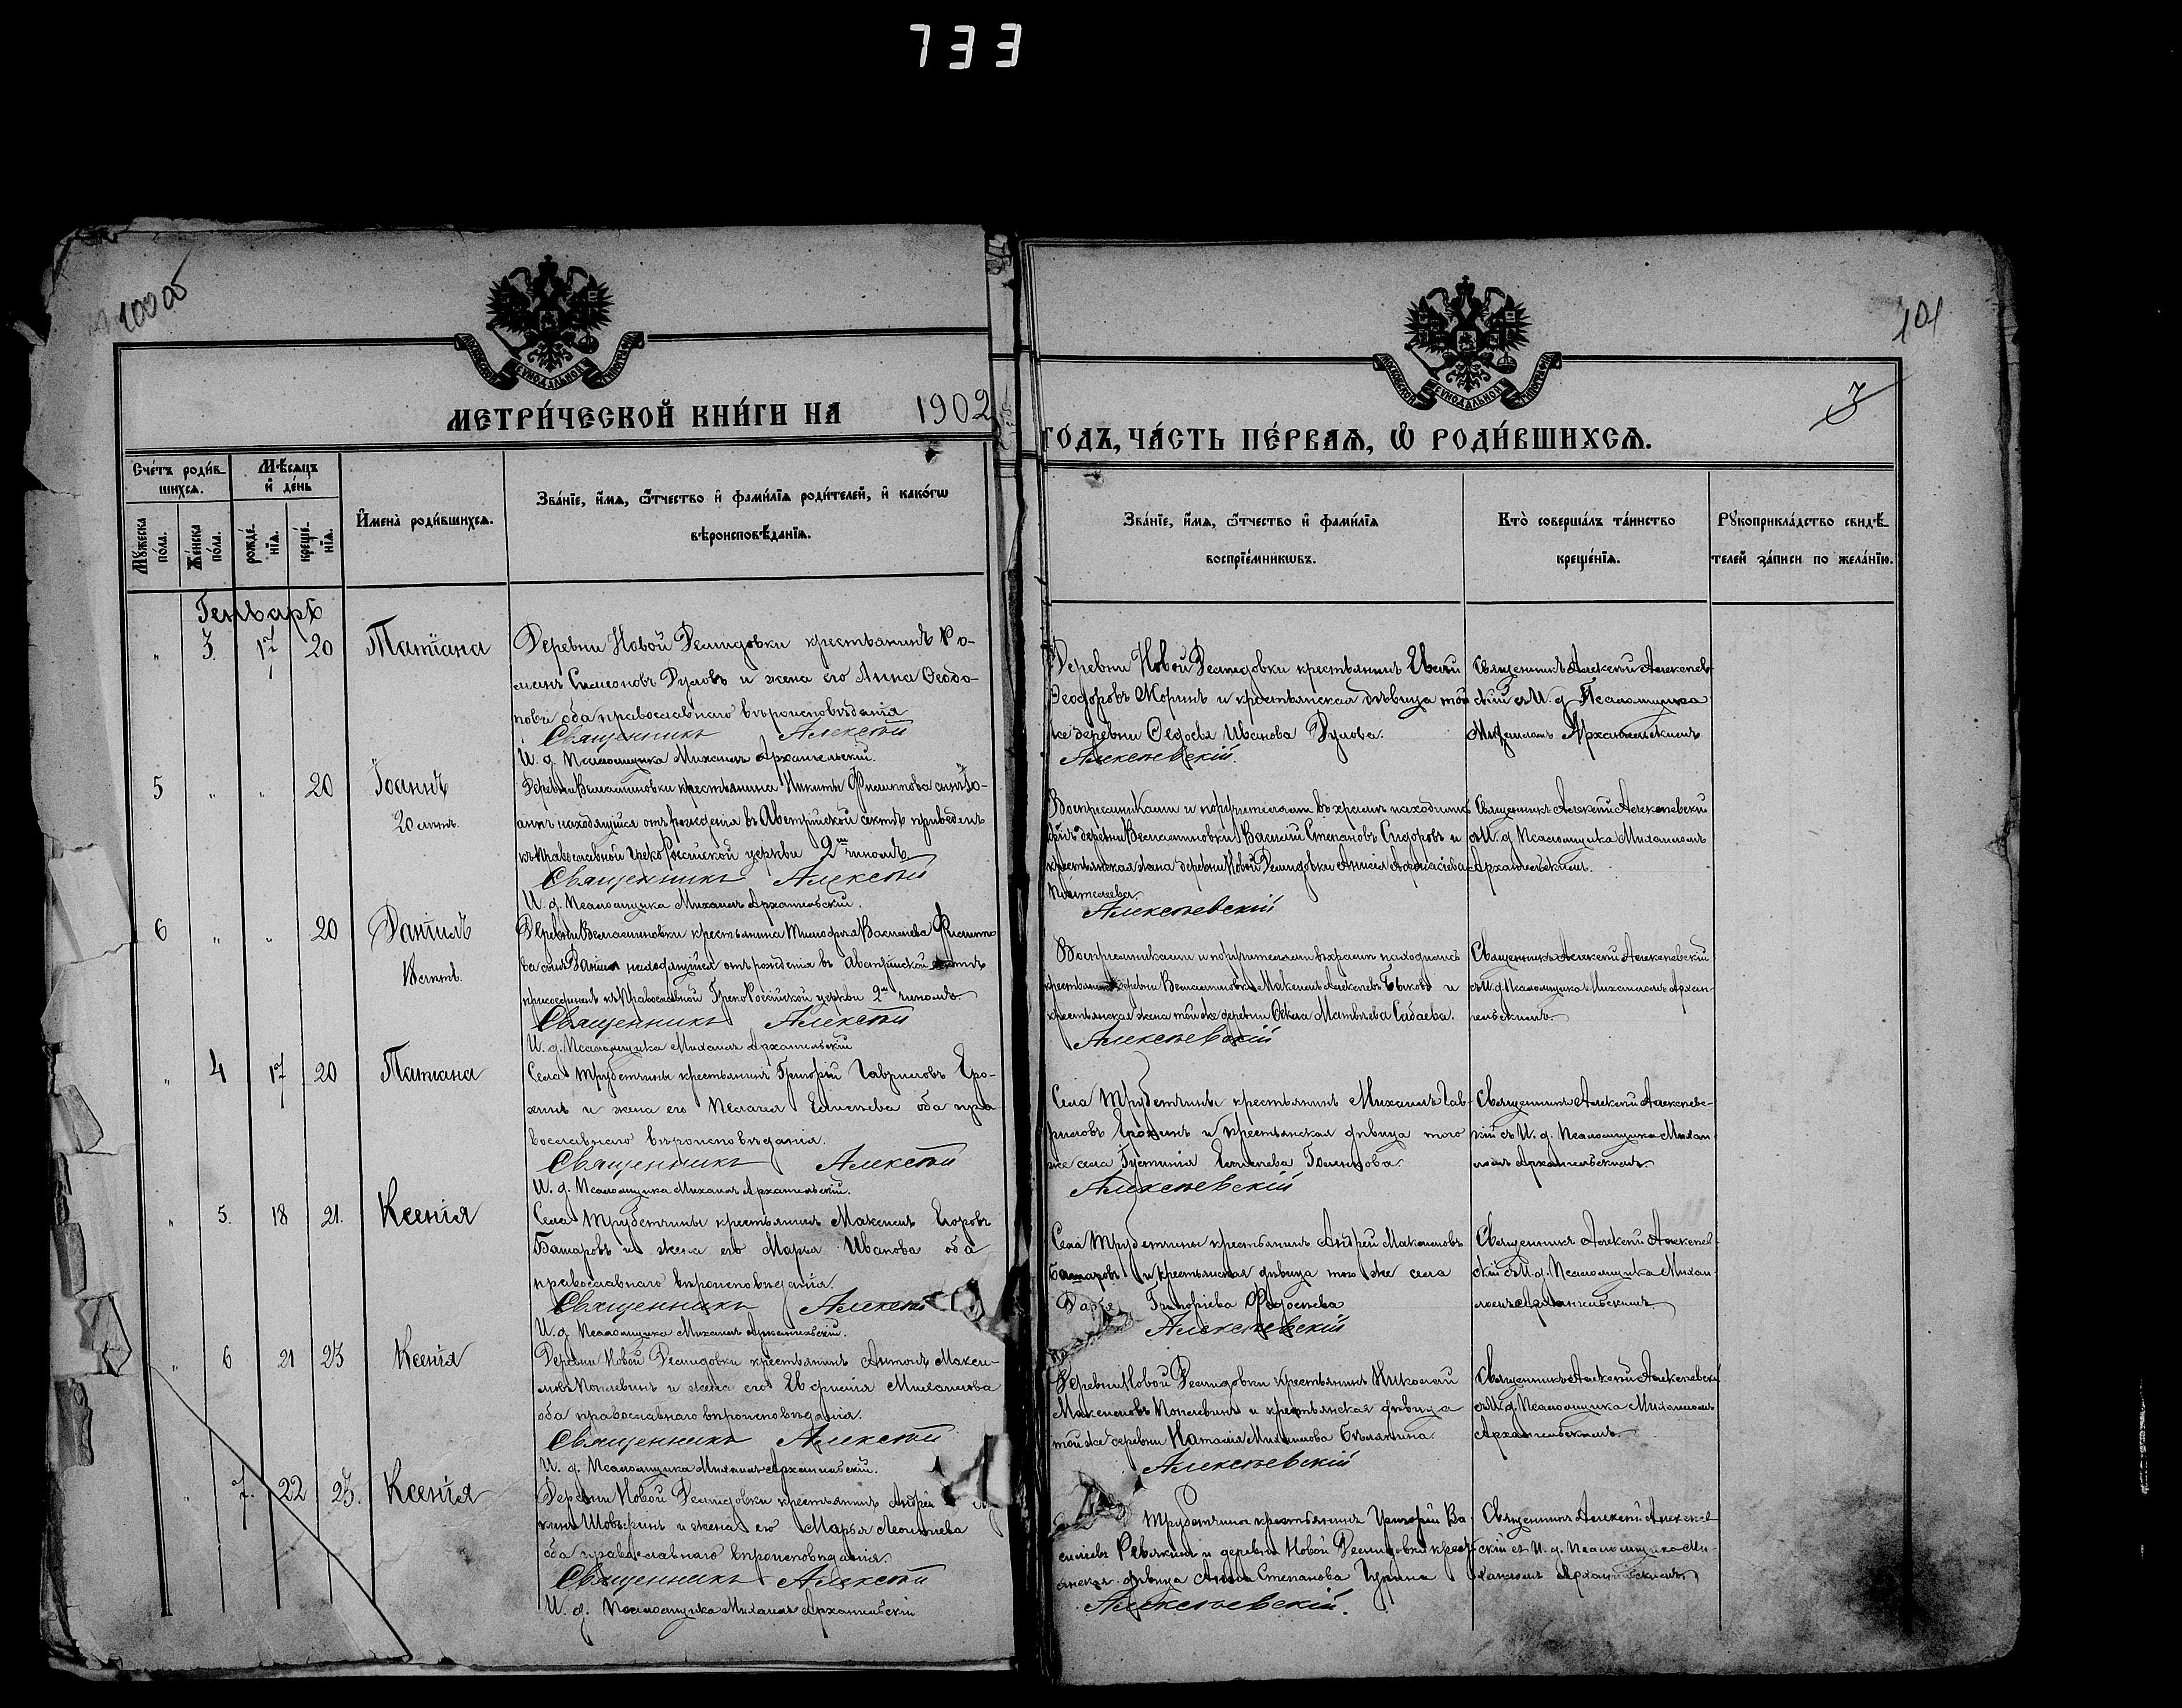 733
100 об
101
3
МОСКОВСКОЙ СѴНОДАЛЬНОЙ ТИПОГРАФІИ
МОСКОВСКОЙ СѴНОДАЛЬНОЙ ТИПОГРАФІИ
МЕТРИ́ЧЕСКОЙ КНИ́ГИ НА 1902 ГО́ДЪ, ЧА́СТЬ ПЕ́РВАѦ, Ѡ РОДИ́ВШИХСѦ.
Сче́тъ роди́в-
шихсѧ.
Мѣ́сѧцъ
и де́нь
Мꙋ́жеска
по́ла.
Же́нска
по́ла.
рожде́-
нїѧ.
креще́-
нїѧ.
И҆мена̀ роди́вшихсѧ.
Зва́нїе, и҆́мѧ, ѻ҆́тчество и҆ фами́лїѧ роди́телей, и҆ како́гѡ
вѣроисповѣ́данїѧ.
Зва́нїе, и҆́мѧ, ѻ҆́тчество и҆ фами́лїѧ
воспрїе́мникѡвъ.
Кто̀ соверша́лъ та́инство
креще́нїѧ.
Рꙋкоприкла́дство свидѣ́-
телей за́писи по жела́нїю.
Генварь
" 3. 17 20 Татіана
Деревни Новой Демидовки крестьянинъ Ро-
манъ Симеоновъ Дуловъ и жена его Анна Ѳеодо-
рова оба православнаго вѣроисповѣданія
Священникъ Алексѣй
И. д. Псаломщика Михаилъ Архангельскій.
Деревни Новой Демидовки крестьянинъ
Ѳеодоровъ Моринъ и крестьянская дѣвица той
же деревни Иванова Дулова.
Алексѣевскій.
Священникъ Алексѣй Алексѣев-
скій съ И. д. Псаломщика
Михаиломъ Архангельскимъ
5 " " 20 Іоаннъ
20 лѣтъ.
Деревни крестьянина Никиты Филиппова сынъ Іо-
аннъ находящійся отъ рожденія въ Австрійской сектѣ приведенъ
къ Православной Греко Россійской церкви 2мъ чиномъ
Священникъ Алексѣй
И. д. Псаломщика Михаилъ Архангельскій.
Воспріемниками и поручителями въ храмѣ находились
деревни Василій Степановъ Сидоровъ и
крестьянская жена деревни Новой Демидовки Анисія Аѳанасіева
Алексѣевскій
Священникъ Алексѣй Алексѣевскій
съ И. д. Псаломщика Михаиломъ
Архангельскимъ.
6 " " 20 Даніилъ
лѣтъ.
Деревни крестьянина Тимоѳея Васильева
сынъ Даніилъ находящійся отъ рожденія въ Австрійской сектѣ
присоединенъ къ Православной Греко Россійской церкви 2мъ чиномъ.
Священникъ Алексѣй
И. д. Псаломщика Михаилъ Архангельскій
Воспріемниками и поручителями въ храмѣ находились
крестьянинъ деревни Максимъ Алексѣевъ Быковъ и
крестьянская жена той же деревни Ѳекла Матвѣева Сабаева.
Алексѣевскій
Священникъ Алексѣй Алексѣевскій
съ И. д. Псаломщика Михаиломъ Архан-
гельскимъ.
" 4 17 20 Татіана
Села Трубетчины крестьянинъ Григорій Гавриловъ Еро-
хинъ и жена его Пелагія Евсигнѣева оба пра
вославнаго вѣроисповѣданія.
Священникъ Алексѣй
И. д. Псаломщика Михаилъ Архангельскій.
Села Трубетчины крестьянинъ Михаилъ Гав-
риловъ Ерохинъ и крестьянская дѣвица того
же села
Алексѣевскій
Священникъ Алексѣй Алексѣевс-
кій съ И. д. Псаломщика Михаи
ломъ Архангельскимъ.
" 5. 18 21. Ксенія
Села Трубетчины крестьянинъ Максимъ Егоровъ
Батаровъ и жена его Марья Иванова оба
православнаго вѣроисповѣданія
Священникъ Алексѣй
И. д. Псаломщика Михаилъ Архангельскій.
Села Трубетчины крестьянинъ Андрей Максимовъ
Батаровъ и крестьянская дѣвица того же села
Дарья Григорьева
Алексѣевскій
Священникъ Алексѣй Алексѣев-
скій съ И. д. Псаломщика Михаи
ломъ Архангельскимъ.
" 6 21 23 Ксенія
Деревни Новой Демидовки крестьянинъ Антонъ Макси-
мовъ и жена его Михаилова
оба православнаго вѣроисповѣданія.
Священникъ Алексѣй
И. д. Псаломщика Михаилъ Архангельскій.
Деревни Новой Демидовки крестьянинъ Николай
Максимовъ и крестьянская дѣвица
той же деревни Наталія Михаилова
Алексѣевскій
Священникъ Алексѣй Алексѣевскій
съ И. д. Псаломщика Михаиломъ
Архангельскимъ.
" 7. 22 23. Ксенія
Деревни Новой Демидовки крестьянинъ Андрей
и жена его Марья Леонтіева
оба православнаго вѣроисповѣданія.
Священникъ Алексѣй
И. д. Псаломщика Михаилъ Архангельскій
Трубетчины крестьянинъ Григорій Ва
сильевъ Ревякинъ и деревни Новой Демидовки крест-
янская дѣвица Анна Степанова
Алексѣевскій.
Священникъ Алексѣй Алексѣев
скій съ И. д. Псаломщика Ми-
хаиломъ Архангельскимъ.